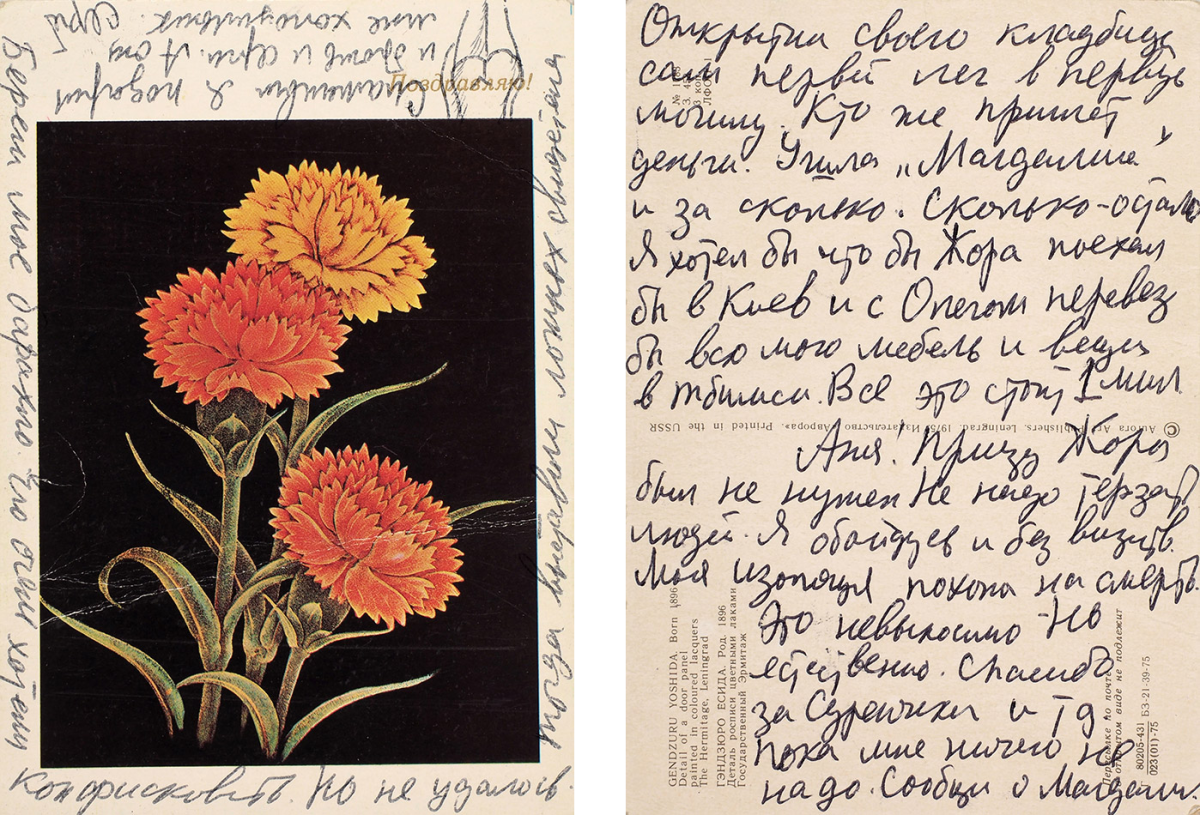 Поздравляю!
Спаменьи я подарил
и брошь и серги. А ону
мне холодильник
Берет мое дарахио. Его очень хотели
конфисковать. Но не удалось.
тогда выставили ложных свидетелей
Открытиа своего кладбища
сам первый лег в первую
могилу. Кто же пришлет
деньги. Ушла „Магдалина"
и за сколько. Сколько-остало
Я хотел бы что бы Жора поехал
бы в Киев и с Олегом перевез
бы всю мою мебель и вещи
в Тбилиси. Все это стоит 1 мил.
Аня! Приезд Жоры
был не нужен Не надо терзать
людей. Я обойдусь и без визитв.
Моя изоляция похожа на смерть.
Это невыносимо - Но
естственно. Спасибо
за Суренчика и тд
пока мне ничего не
надо. Сообщи о Магдалин.
© Aurora Art Publishers. Leningrad. 1975. Издательство «Аврора». Printed in the USSR
GENDZURU YOSHIDA Born 1896
Detail of a door panel
painted in coloured lacquers
The Hermitage, Leningrad
ГЭНДЗЮРО ЕСИДА. Род. 1896
Деталь росписи цветными лаками
Государственный Эрмитаж
Пересылке по почте
в открытом виде не подлежит
80205-431
023(01)-75
БЗ-21-39-75